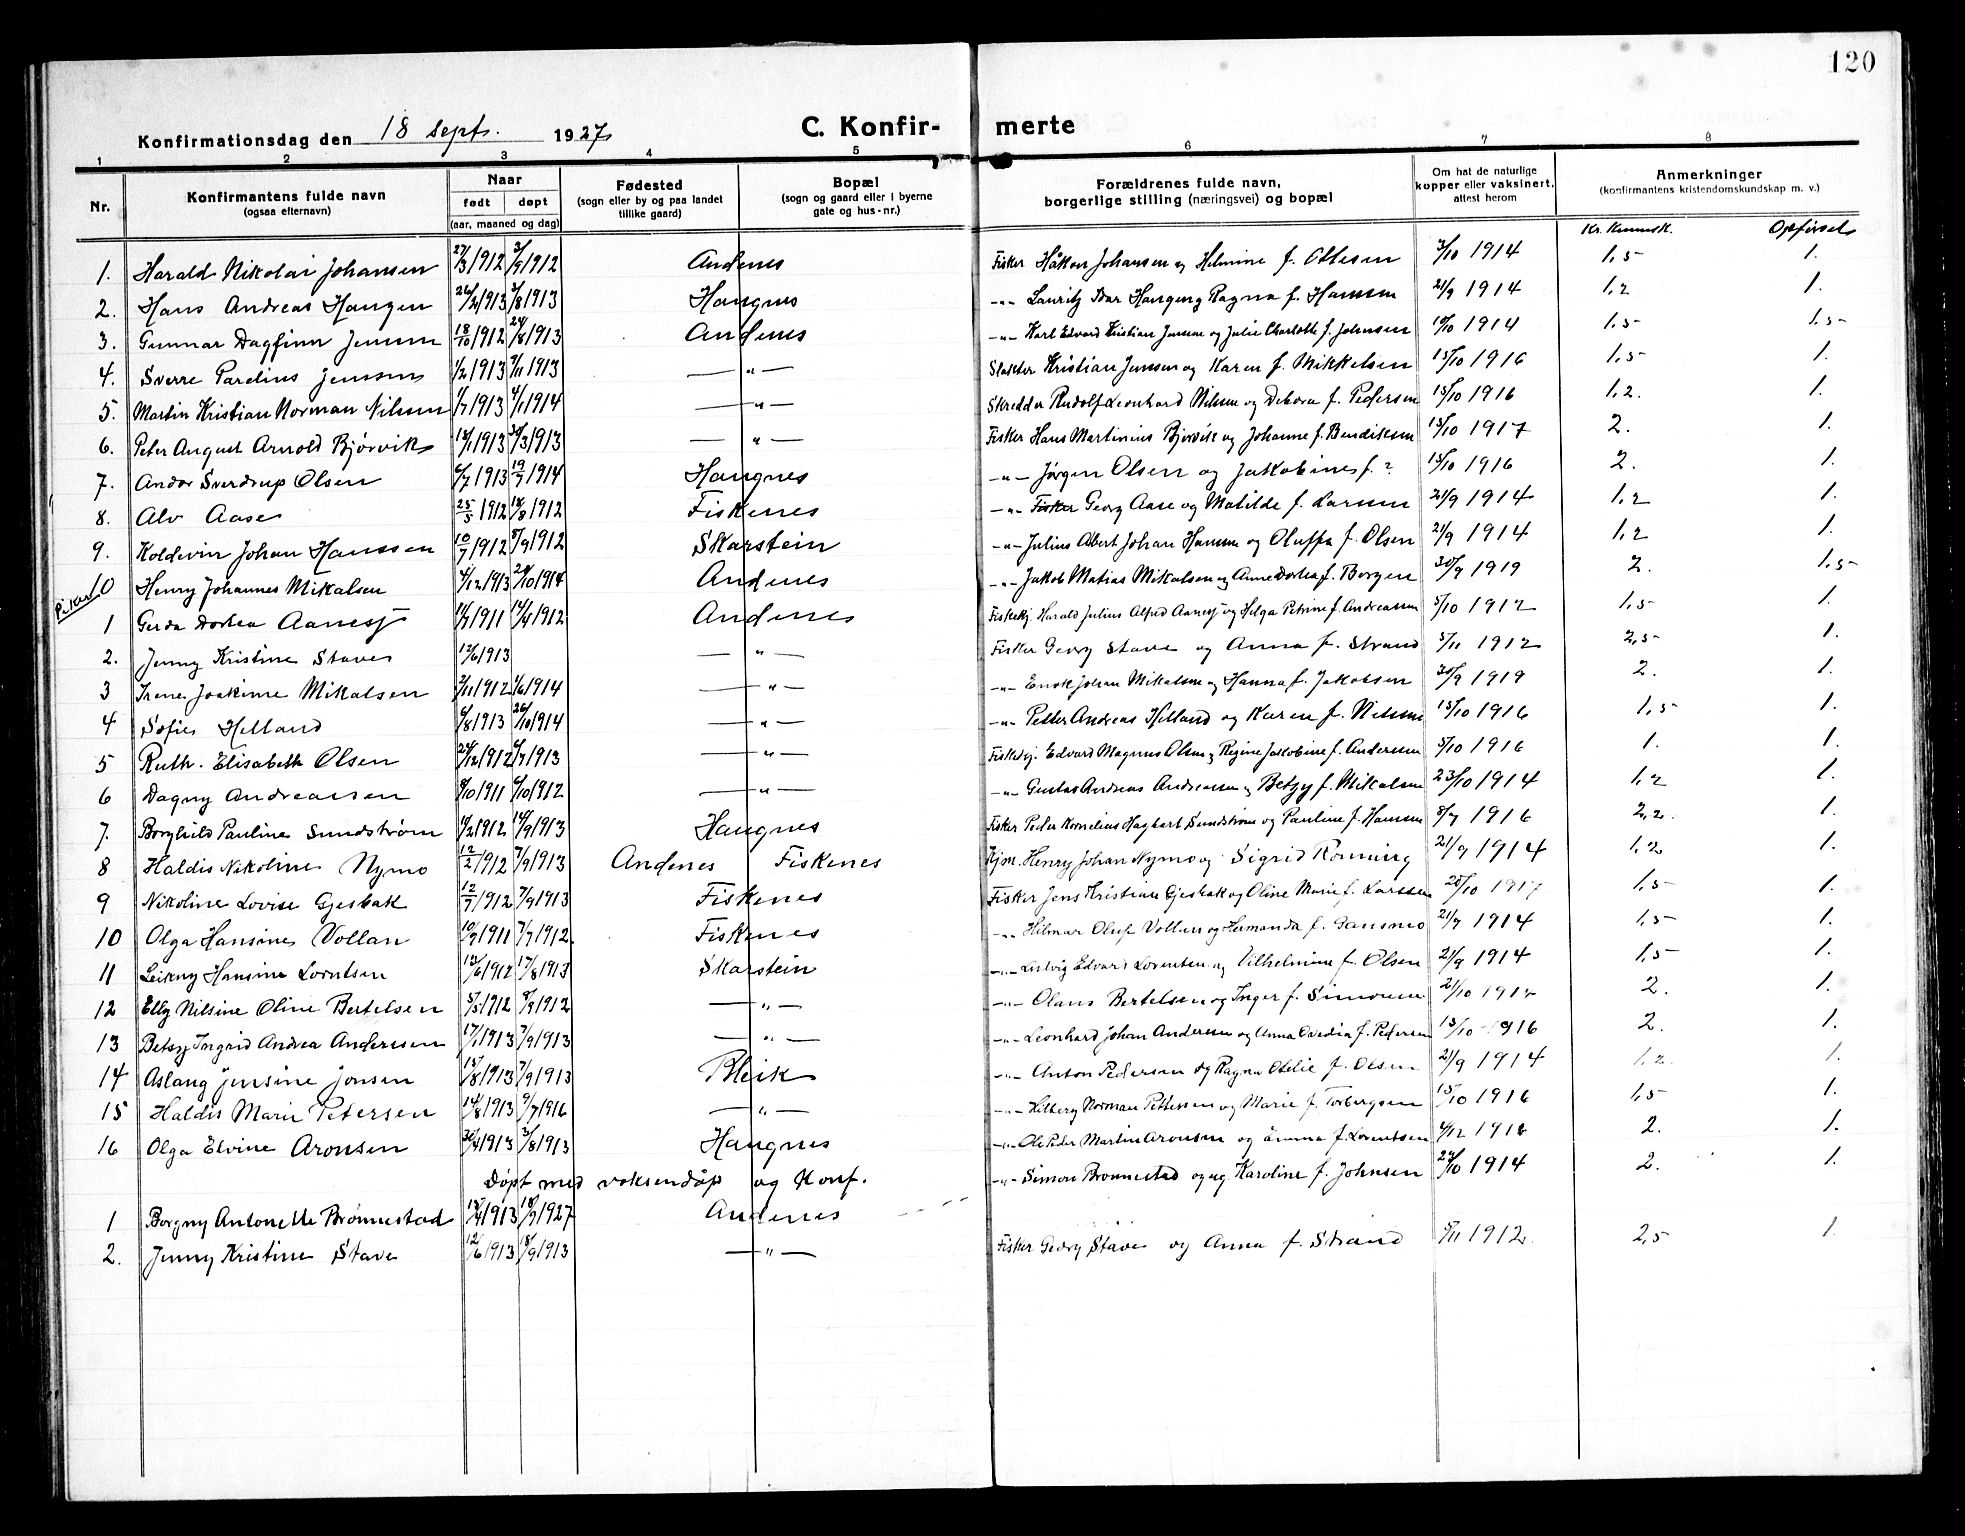 120
Konfirmationsdag den 18 sept. 1927
C. Konfir- merte
1 2 3 4 5 6 7 8
Nr. Konfirmantens fulde navn (ogsaa efternavn) Naar født døpt (aar, maaned og dag) Fødested (sogn eller by og paa landet tillike gaard) Bopæl (sogn og gaard eller i byerne gate og hus-nr.) Forældrenes fulde navn, borgerlige stilling (næringsvei) og bopæl Om hat de naturlige kopper eller vaksinert, attest herom Anmerkninger (konfirmantens kristendomskundskap m. v.)
Kr. Kunnsk. Opførsel
1. Harald Nikolai Johansen 27/3 1912 3/9 1912 Andenes Fisker Håkon Johansen og Helmine f. Ottesen 3/10 1914 1,5 1.
2. Hans Andreas Haugen 26/2 1913 3/8 1913 Haugnes -"- Lauritz Haugen og Ragna f. Hansen 21/9 1914 1,2 1.
3. Gunnar Dagfinn Jensen 18/10 1912 24/8 1913 Andenes -"- Karl Edvard Kristian Jensen og Julie Charlotte f. Johnsen 10/10 1914 1,5 1,5
4. Sverre Parelius Jensen 1/2 1913 1913 — " — Slakter Kristian Jensen og Karen f. Mikkelsen 15/10 1916 1,5 1.
5. Martin Kristian Norman Nilsen 1913 4/1 1914 — " — Skredder Rudolf Leonhard Nilsen og Debora f. Pedersen 15/10 1916 1,2. 1.
6. Peter August Arnold Bjørvik 1913 1913 — " — Fisker Hans Martinius Bjørvik og Johanne f. Bendiksen 15/10 1917 2. 1.
7. Andor Sverdrup Olsen 6/7 1913 19/7 1914 Haugnes -"- Jørgen Olsen og Jakobine f. ? 15/10 1916 2. 1.
8. Alv Aase 25/5 1912 18/8 1912 Fiskenes -"- Fisker Georg Aase og Matilde f. Larsen 21/9 1914 1,2 1.
9. Koldevin Johan Hanssen 10/7 1912 8/9 1912 Skarstein -"- Julius Albert Johan Hansen og Oluffa f. Olsen 21/9 1914 1,2 1.
10 Henry Johannes Mikalsen 4/12 1913 1914 Andenes -"- Jakob Matias Mikalsen og Anne Dortea f. Borgen 30/9 1919 2. 1,5
Piker
1 Gerda Dortea Aanesj 1911 14/4 1912 Andenes Fiskekj. Harald Julius Alfred Aanesj og Helga Petrine f. Andreassen 5/10 1912 1,5 1.
2. Jenny Kristine Stave 12/6 1913 — " — Fisker Georg Stave og Anna f. Strand 5/11 1912 2,5 1.
3 Irene Joakime Mikalsen 1912 1/6 1914 — " — -"- Enok Johan Mikalsen og Hanna f. Jakobsen 30/9 1919 2. 1.
4 Sofie Helland 6/8 1913 26/10 1914 — " — -"- Petter Andreas Helland og Karen f. Nilsen 15/10 1916 1,5 1.
5 Ruth. Elisabeth Olsen 1912 1913 — " — Fiskekj. Edvard Magnus Olsen og Regine Jakobine f. Andersen 5/10 1916 1. 1.
6 Dagny Andreassen 8/10 1911 6/10 1912 — " — -"- Gustav Andreas Andreassen og Betzy f. Mikalsen 23/10 1914 1,2 1.
7. Borghild Pauline Sundstrøm 1912 14/9 1913 Haugnes Fisker Peder Kornelius Hagbart Sundstrøm og Pauline f. Hansen 8/7 1916 2,2. 1.
8 Haldis Nikoline Nymo 12/2 1912 7/9 1913 Andenes Fiskenes Kjm. Henry Johan Nymo og Sigrid Rønning 21/9 1914 1,2 1.
9 Nikoline Lovise Gjesbak 12/7 1912 7/9 1913 Fiskenes Fisker Jens Kristian Gjesbak og Oline Marie f. Larssen 1917 1,5 1.
10 Olga Hansine Vollan 10/9 1911 7/7 1912. Fiskenes -"- Hilmar Oluf Vollan og Hermanda f. Gausmo 21/9 1914 1,5 1.
11 Leikny Hansine Lorntsen 1912 17/8 1913 Skarstein -"- Ludvig Edvard Lorentsen og Vilhelmine f. Olsen 21/9 1914 1,5 1.
12 Elly Nilsine Oline Bertelsen 1912 8/9 1912 — " — -"- Olaus Bertelsen og Inger f. Simonsen 21/10 2. 1.
13 Betsy Ingrid Andrea Anderssen 17/1 1913 7/9 1913 — " — -"- Leonhard Johan Andersen og Anna Ovedia f. Pedersen 15/10 1916 2. 1.
14 Aslaug Jensine Jonsen 15/8 1913 7/9 1913 Bleik -"- Anton Pedersen og Ragna Otelie f. Olsen 21/9 1914 1,2. 1.
15 Haldis Marie Petersen 14/8 1913 9/7 1916 — " — -"- Hilberg Norman Pettersen og Marie f. Torbergsen 15/10 1916 1,5 1.
16 Olga Elvine Aronsen 1913 3/8 1913 Haugnes -"- Ole Peder Martin Aronsen og Emma f. Lorentsen 4/12 1918 2. 1.
Døpt med voksendåp og Konf. -"- Simon Brønnestad og Karoline f. Johnsen 1914 2. 1.
1 Borgny Antonette Brønnestad 1913 18/9 1927 Andenes
2. Jenny Kristine Stave 12/6 1913 18/9 1913 — " — Fisker Georg Stave og Anna f. Strand 5/11 1912. 2,5 1.